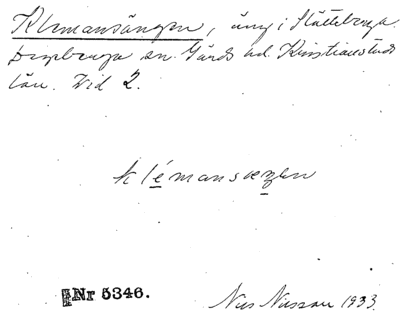 Klemansängen, äng i Slätteberga
Degeberga sn. Gärds hd. Kristianstads
län. Wid 2.
klémansæŋen
Nr 5346.
Nils Nilsson 1933.